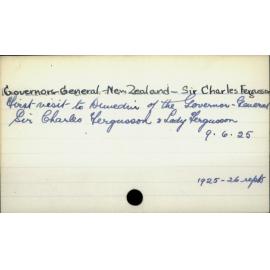 Governors-General-New Zealand-Sir Charles Fergusson
First visit to Dunedin of the Governor-General
Sir Charles Fergusson & Lady Fergusson
9.6.25
1925-26 repts